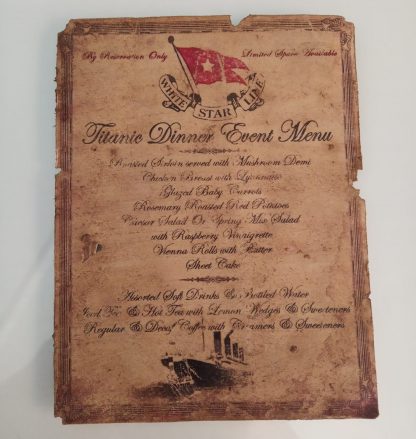 By Reservation Only
Limited Space Available
WHITE STAR LINE
Titanic Dinner Event Menu
Roasted Sirloin served with Mushroom Demi
Chicken Breast with Lyonnaise
Glazed Baby Carrots
Rosemary Roasted Red Potatoes
Caesar Salad Or Spring Mix Salad
with Raspberry Vinaigrette
Vienna Rolls with Butter
Sheet Cake
Assorted Soft Drinks & Bottled Water
Iced Tea & Hot Tea with Lemon Wedges & Sweeteners
Regular & Decaf Coffee with Creamers & Sweeteners